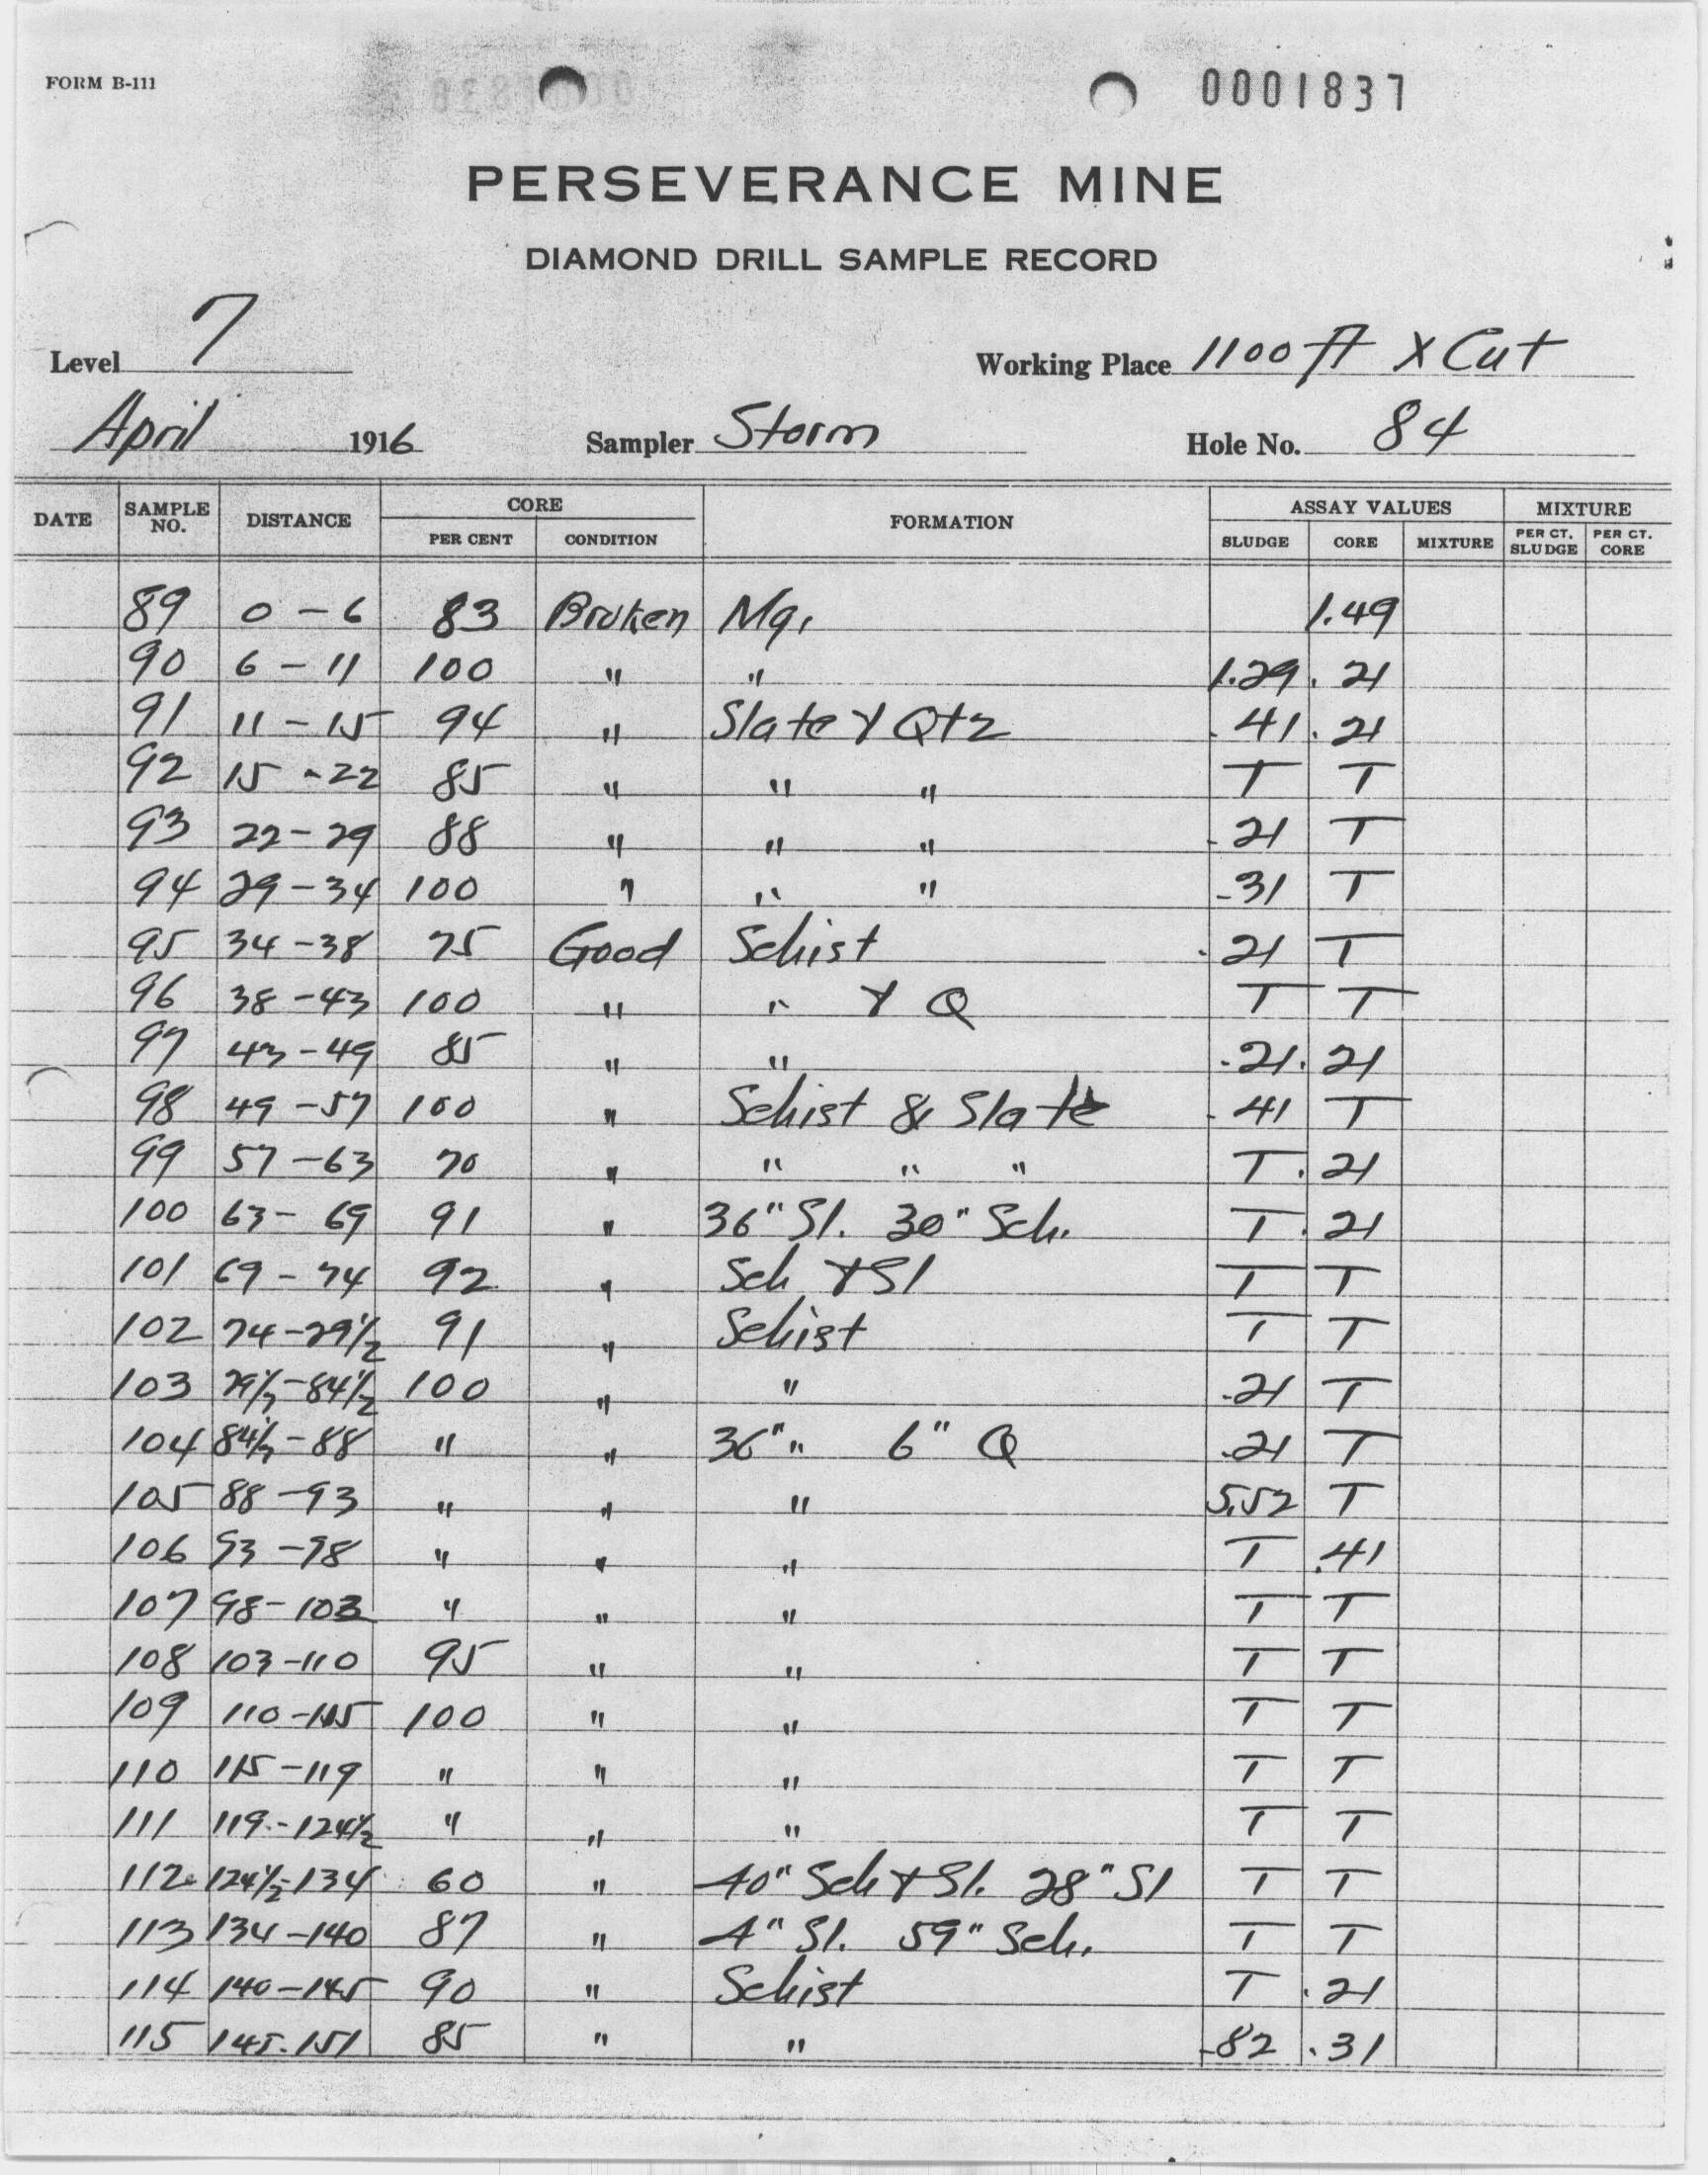 FORM B-111
0001837
PERSEVERANCE MINE
DIAMOND DRILL SAMPLE RECORD
Level 7 Working Place 1100 ft X Cut
April 1916 Sampler Storm Hole No. 84
DATE SAMPLE NO. DISTANCE CORE PER CENT CONDITION FORMATION ASSAY VALUES SLUDGE CORE MIXTURE MIXTURE PER CT. SLUDGE PER CT. CORE
89 0 - 6 83 Broken Mq. 1.49
90 6 - 11 100 " " 1.29 .21
91 11 - 15 94 " Slate & Qtz .41 .21
92 15 - 22 85 " " " T T
93 22 - 29 88 " " " .21 T
94 29 - 34 100 " " " .31 T
95 34 - 38 75 Good Schist .21 T
96 38 - 43 100 " " & Q T T
97 43 - 49 85 " " .21 .21
98 49 - 57 100 " Schist & Slate .41 T
99 57 - 63 70 " " " " T .21
100 63 - 69 91 " 36" Sl. 30" Sch. T .21
101 69 - 74 92 " Sch & Sl T T
102 74 - 79½ 91 " Schist T T
103 79½ - 84½ 100 " " .21 T
104 84½ - 88 " " 36" " 6" Q .21 T
105 88 - 93 " " " 5.52 T
106 93 - 98 " " " T .41
107 98 - 103 " " " T T
108 103 - 110 95 " " T T
109 110 - 115 100 " " T T
110 115 - 119 " " " T T
111 119 - 124½ " " " T T
112 124½ - 134 60 " 40" Sch & Sl. 28" Sl T T
113 134 - 140 87 " 4" Sl. 59" Sch. T T
114 140 - 145 90 " Schist T .21
115 145 - 151 85 " " .82 .31